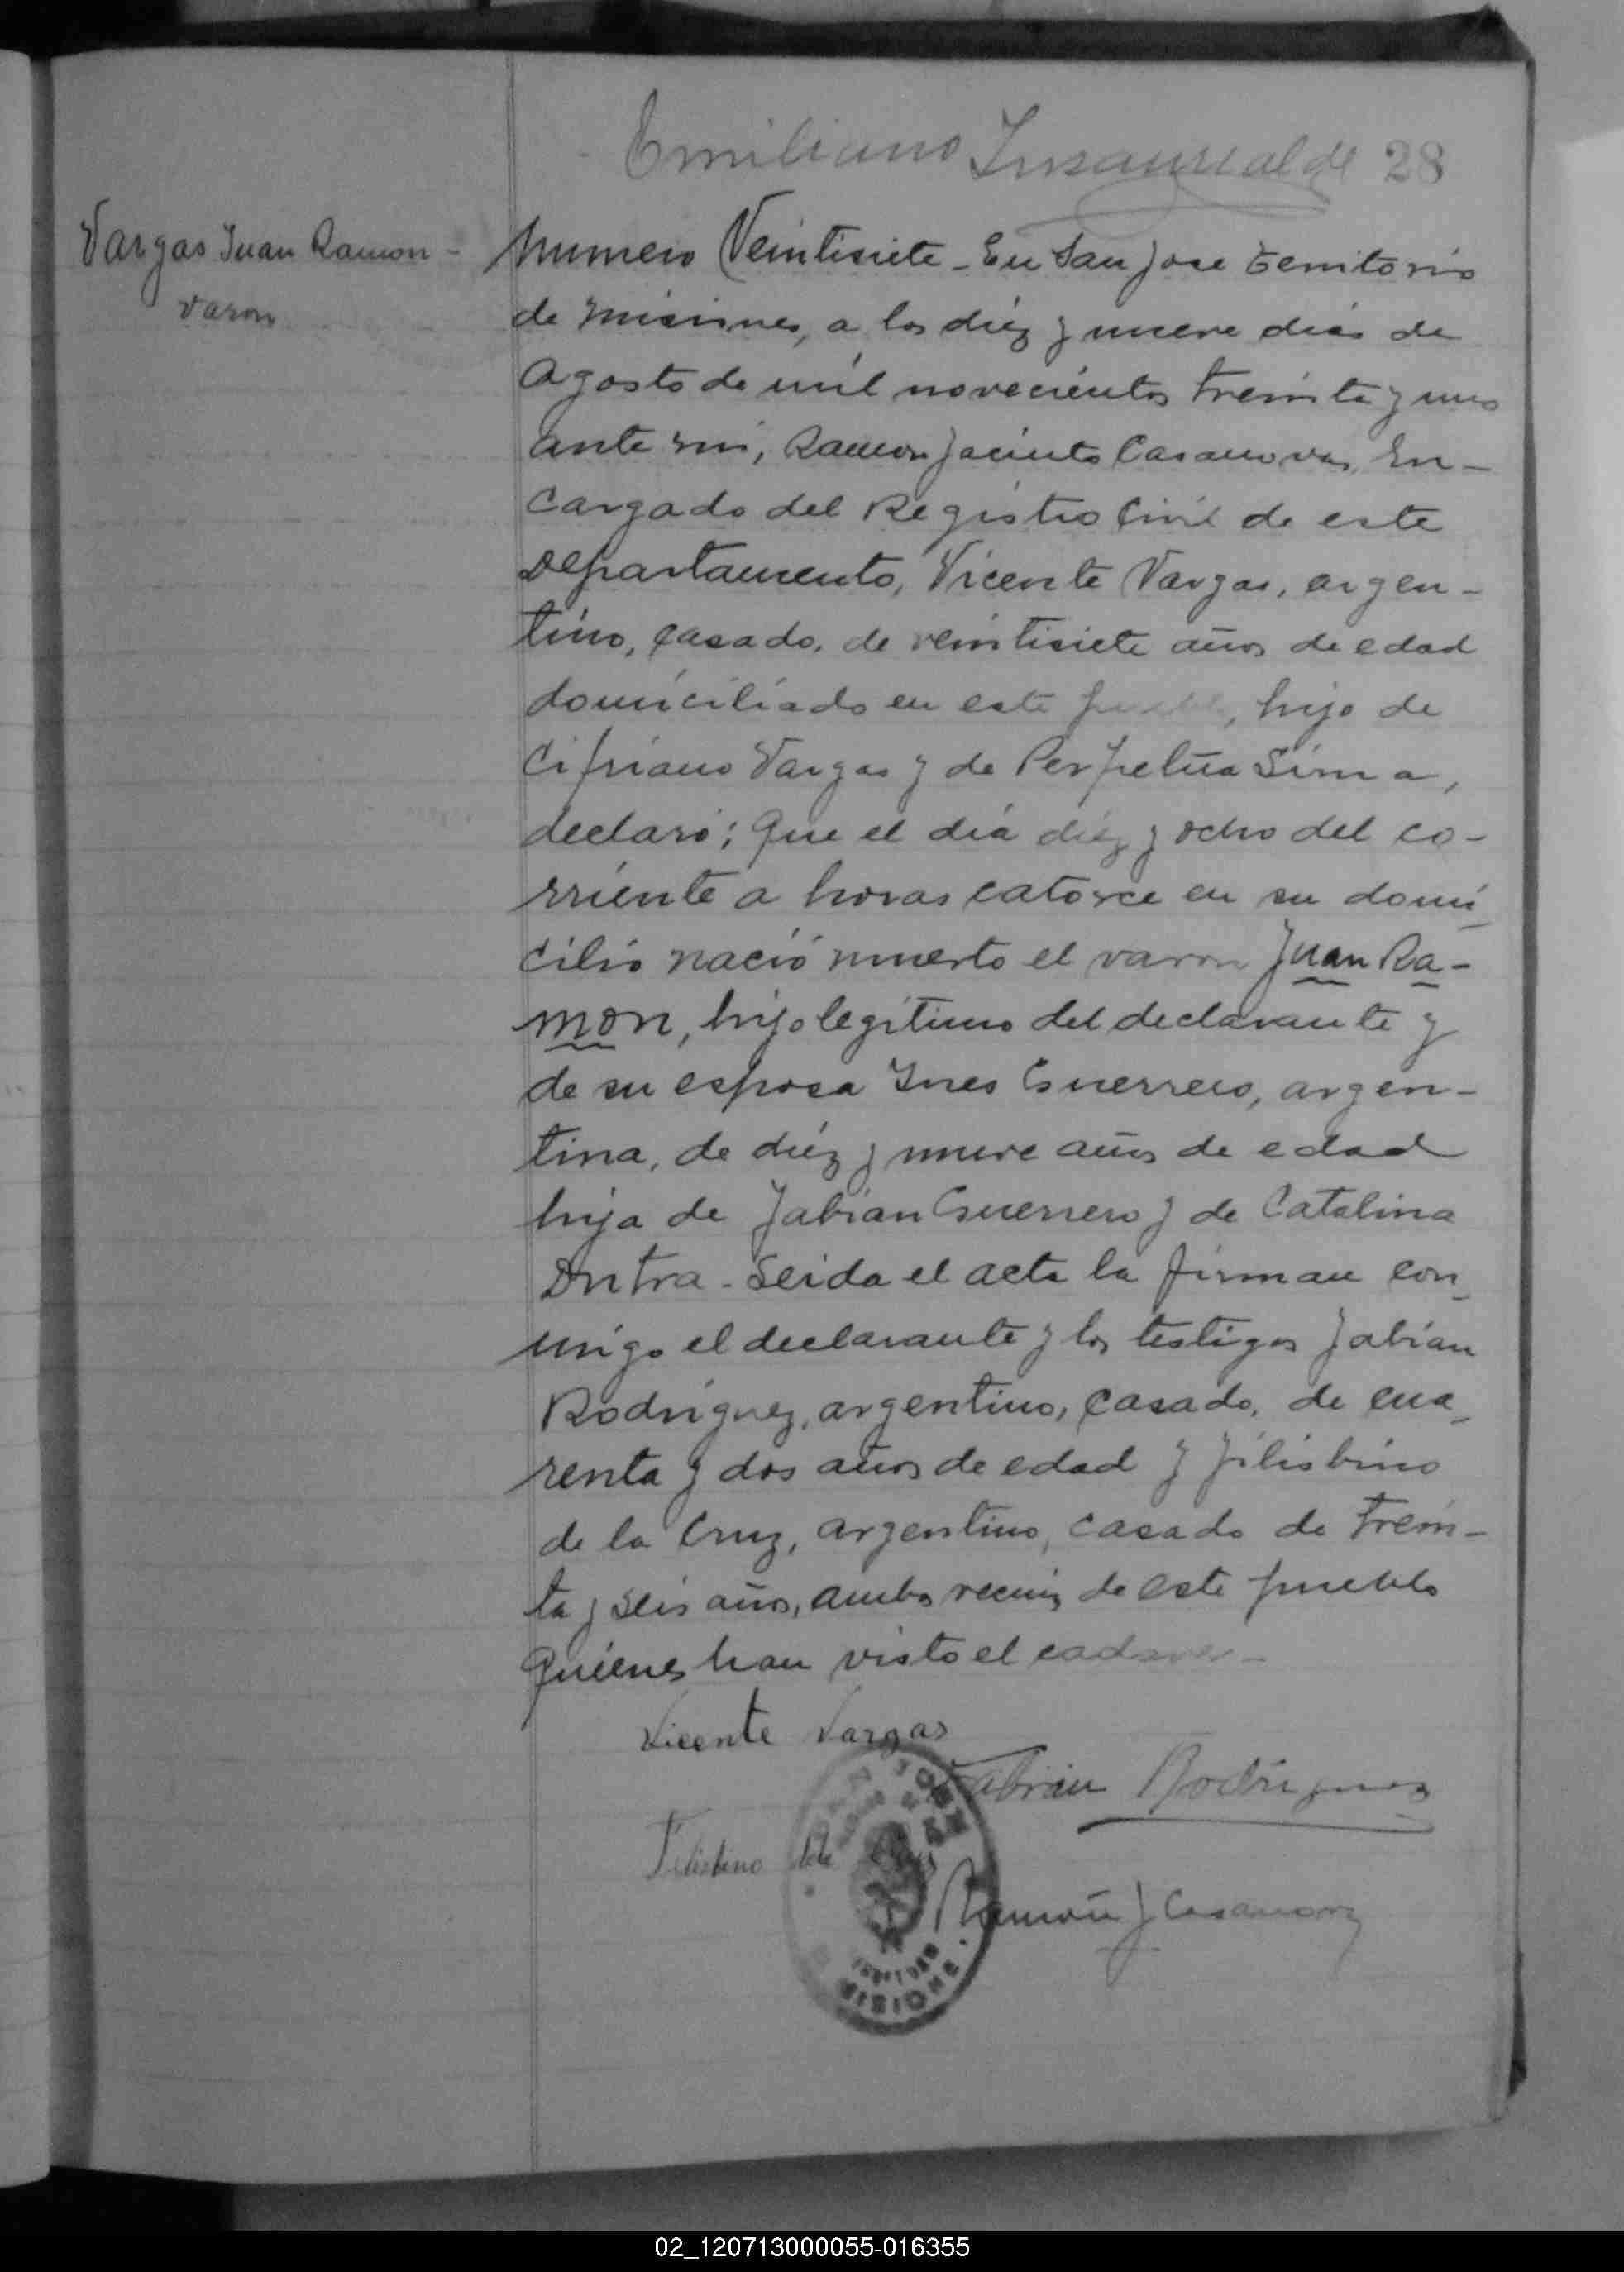 Emiliano Insaurralde 28
Vargas Juan Ramon -
varon
Numero Veintisiete - En San Jose Territorio
de Misiones, a los diéz y nueve dias de
Agosto de mil novecientos treinta y uno
ante mi, Ramon Jacinto Casanova, En-
cargado del Registro Civil de este
Departamento, Vicente Vargas, argen-
tino, casado, de veintisiete años de edad
domiciliado en este pueblo, hijo de
Cipriano Vargas y de Perpetua
declaró; Que el día diéz y ocho del co-
rriente a horas catorce en su domi
cilio nació muerto el varon Juan Ra-
mon, hijo legítimo del declarante y
de su esposa Ines Guerrero, argen-
tina, de diéz y nueve años de edad
hija de Fabian Guerrero y de Catalina
Dutra - Leida el acta la firman con
migo el declarante y los testigos Fabian
Rodriguez, argentino, casado, de cua
renta y dos años de edad y Filisbino
de la Cruz, argentino, casado de trein-
ta y seis años, ambos vecinos de este pueblo
Quienes han visto el cadaver -
Vicente Vargas
Fabian Rodriguez
de la
Ramón J Casanova
SAN JOSE
MISIONES
02_120713000055-016355